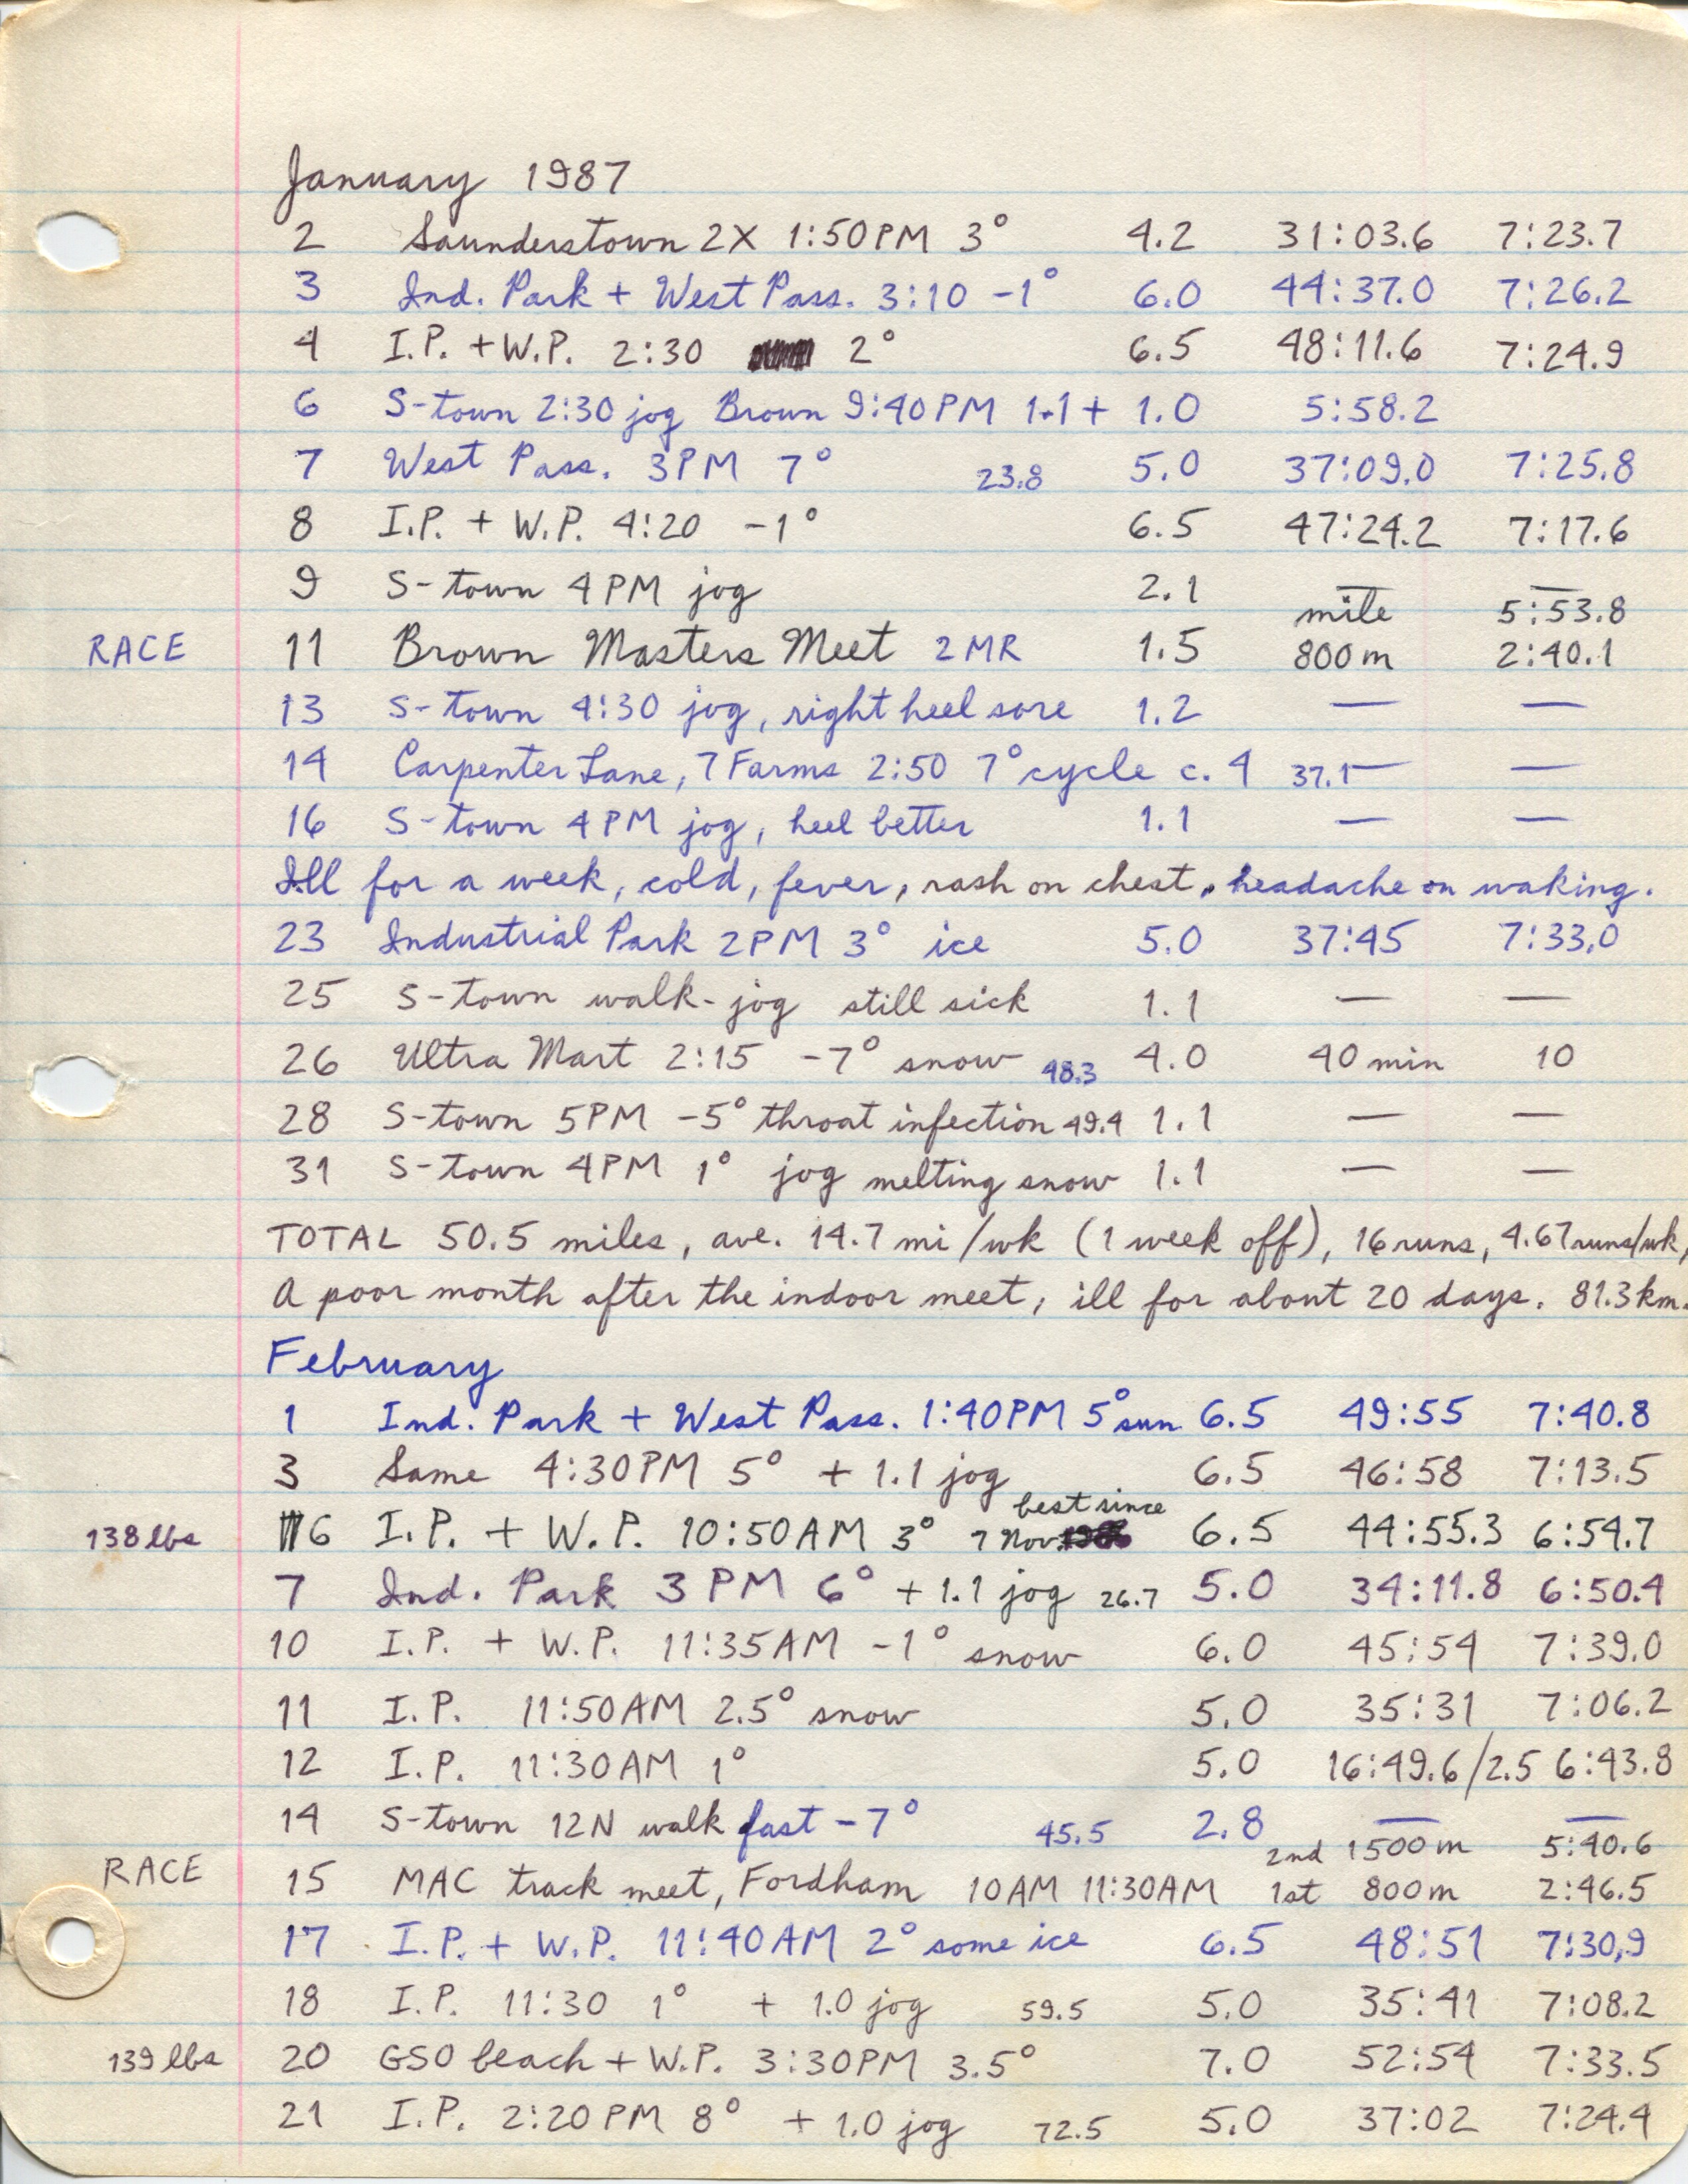 January 1987
2 Saunderstown 2X 1:50PM 3° 4.2 31:03.6 7:23.7
3 Ind. Park + West Pass. 3:10 -1° 6.0 44:37.0 7:26.2
4 I.P. + W.P. 2:30 2° 6.5 48:11.6 7:24.9
6 S-town 2:30 jog Brown 9:40PM 1.1 + 1.0 5:58.2
7 West Pass. 3PM 7° 23.8 5.0 37:09.0 7:25.8
8 I.P. + W.P. 4:20 -1° 6.5 47:24.2 7:17.6
9 S-town 4PM jog 2.1 — —
mile 5:53.8
RACE 11 Brown Masters Meet 2MR 1.5 800m 2:40.1
13 S-town 4:30 jog, right heel sore 1.2 — —
14 Carpenter Lane, 7 Farms 2:50 7° cycle c. 4 37.1 — —
16 S-town 4PM jog, heel better 1.1 — —
Ill for a week, cold, fever, rash on chest, headache on waking.
23 Industrial Park 2PM 3° ice 5.0 37:45 7:33.0
25 S-town walk-jog still sick 1.1 — —
26 Ultra Mart 2:15 -7° snow 48.3 4.0 40 min 10
28 S-town 5PM -5° throat infection 49.4 1.1 — —
31 S-town 4PM 1° jog melting snow 1.1 — —
TOTAL 50.5 miles, ave. 14.7 mi/wk (1 week off), 16 runs, 4.67 runs/wk,
A poor month after the indoor meet, ill for about 20 days. 81.3 km.
February
1 Ind. Park + West Pass. 1:40PM 5° sun 6.5 49:55 7:40.8
3 Same 4:30PM 5° + 1.1 jog 6.5 46:58 7:13.5
best since
138 lbs 6 I.P. + W.P. 10:50AM 3° 7 Nov. 6.5 44:55.3 6:54.7
7 Ind. Park 3PM 6° + 1.1 jog 26.7 5.0 34:11.8 6:50.4
10 I.P. + W.P. 11:35AM -1° snow 6.0 45:54 7:39.0
11 I.P. 11:50AM 2.5° snow 5.0 35:31 7:06.2
12 I.P. 11:30AM 1° 5.0 16:49.6/2.5 6:43.8
14 S-town 12N walk fast -7° 45.5 2.8 — —
2nd 1500m 5:40.6
RACE 15 MAC track meet, Fordham 10AM 11:30AM 1st 800m 2:46.5
17 I.P. + W.P. 11:40AM 2° some ice 6.5 48:51 7:30.9
18 I.P. 11:30 1° + 1.0 jog 59.5 5.0 35:41 7:08.2
139 lbs 20 GSO beach + W.P. 3:30PM 3.5° 7.0 52:54 7:33.5
21 I.P. 2:20PM 8° + 1.0 jog 72.5 5.0 37:02 7:24.4